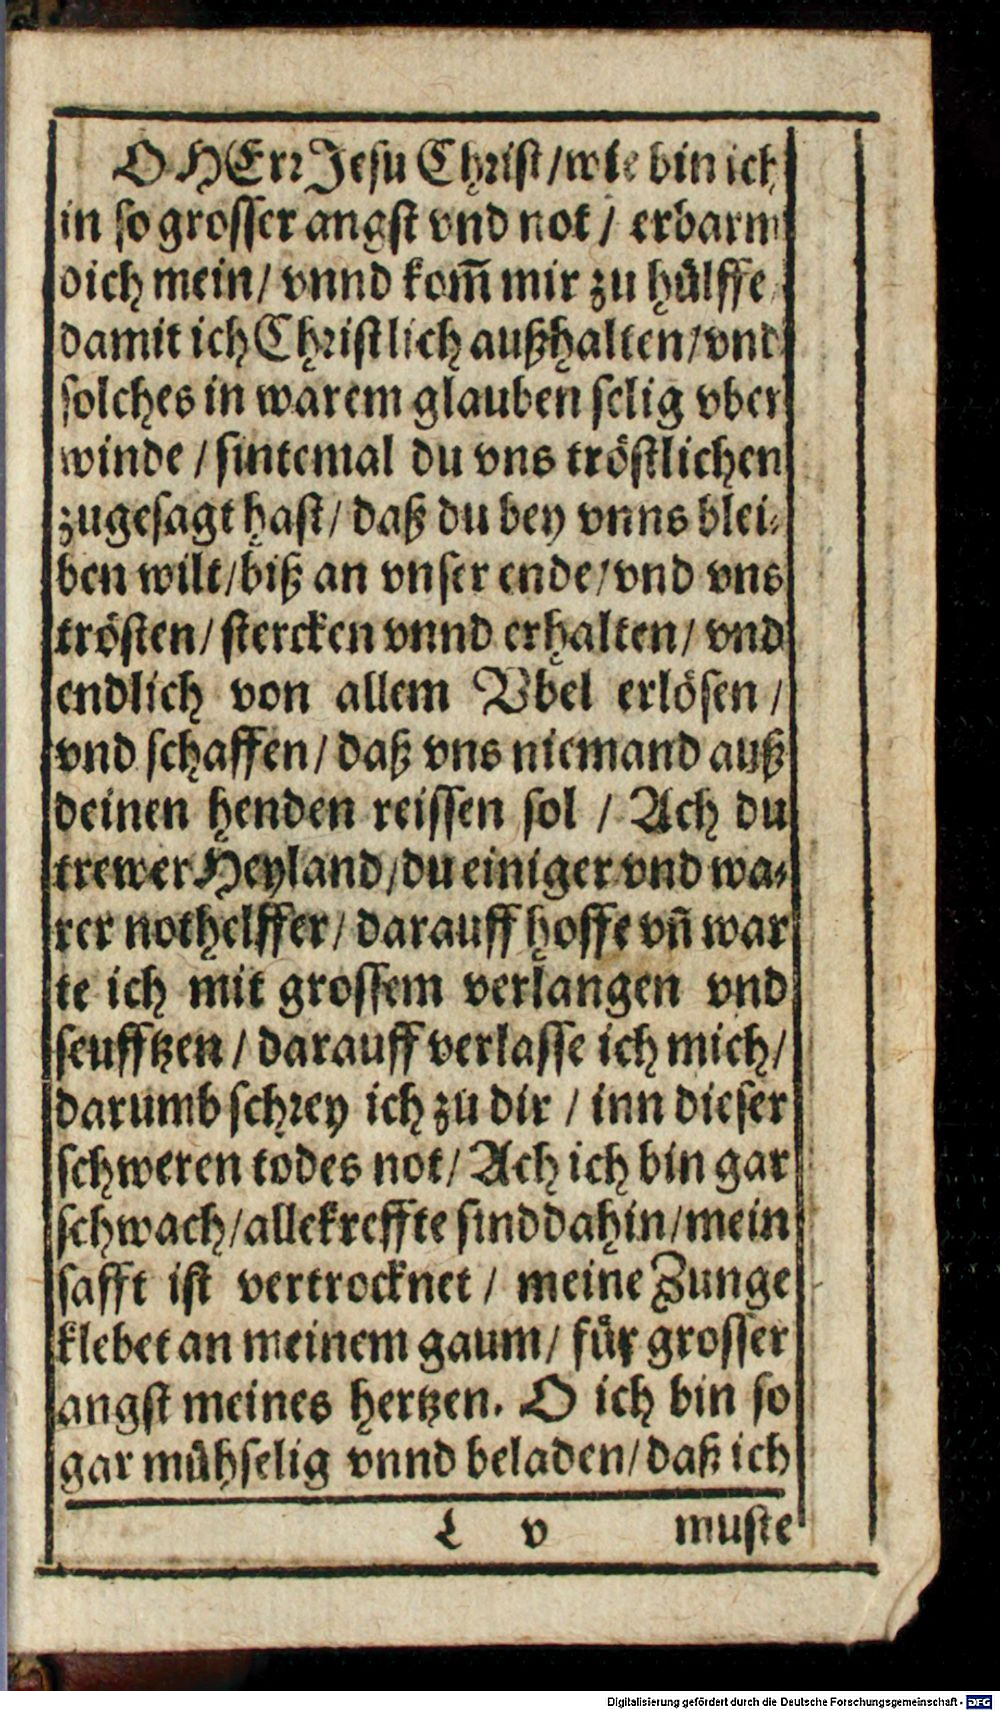 O HErr Jesu Christ / wie bin ich
in so grosser angst vnd not / erbarm
dich mein / vnnd kom̃ mir zu hülffe /
damit ich Christlich außhalten / vnd
solches in warem glauben selig vber
winde / sintemal du vns tröstlichen
zugesagt hast / daß du bey vnns blei-
ben wilt / biß an vnser ende / vnd vns
trösten / stercken vnnd erhalten / vnd
endlich von allem Vbel erlösen /
vnd schaffen / daß vns niemand auß
deinen henden reissen sol / Ach du
trewer Heyland / du einiger vnd wa-
rer nothelffer / darauff hoffe vñ war
te ich mit grossem verlangen vnd
seufftzen / darauff verlasse ich mich /
darumb schrey ich zu dir / inn dieser
schweren todes not / Ach ich bin gar
schwach / alle kreffte sind dahin / mein
safft ist vertrocknet / meine Zunge
klebet an meinem gaum / für grosser
angst meines hertzen. O ich bin so
gar mühselig vnnd beladen / daß ich
L v muste
Digitalisierung gefördert durch die Deutsche Forschungsgemeinschaft - DFG